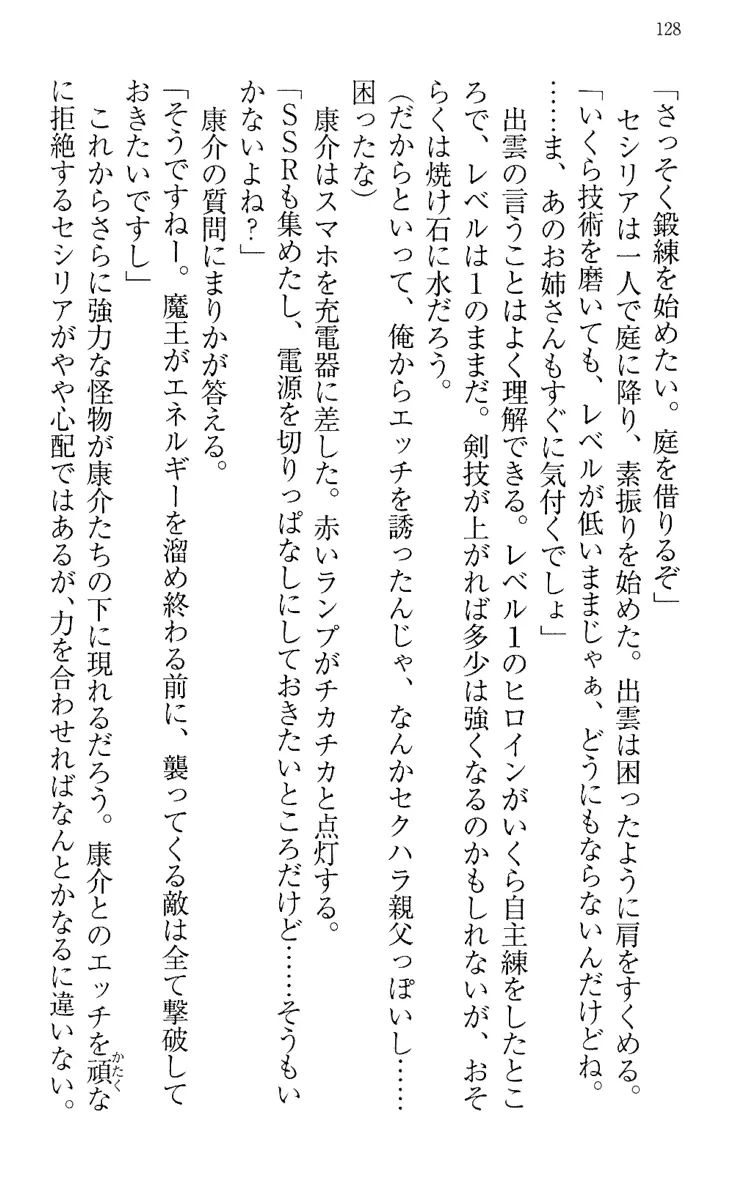 128
「さっそく鍛練を始めたい。庭を借りるぞ」
　セシリアは一人で庭に降り、素振りを始めた。出雲は困ったように肩をすくめる。
「いくら技術を磨いても、レベルが低いままじゃぁ、どうにもならないんだけどね。
……ま、あのお姉さんもすぐに気付くでしょ」
　出雲の言うことはよく理解できる。レベル1のヒロインがいくら自主練をしたとこ
ろで、レベルは1のままだ。剣技が上がれば多少は強くなるのかもしれないが、おそ
らくは焼け石に水だろう。
（だからといって、俺からエッチを誘ったんじゃ、なんかセクハラ親父っぽいし……
困ったな）
　康介はスマホを充電器に差した。赤いランプがチカチカと点灯する。
「SSRも集めたし、電源を切りっぱなしにしておきたいところだけど……そうもい
かないよね？」
　康介の質問にまりかが答える。
「そうですねー。魔王がエネルギーを溜め終わる前に、襲ってくる敵は全て撃破して
おきたいですし」
　これからさらに強力な怪物が康介たちの下に現れるだろう。康介とのエッチを頑な
に拒絶するセシリアがやや心配ではあるが、力を合わせればなんとかなるに違いない。
かたく